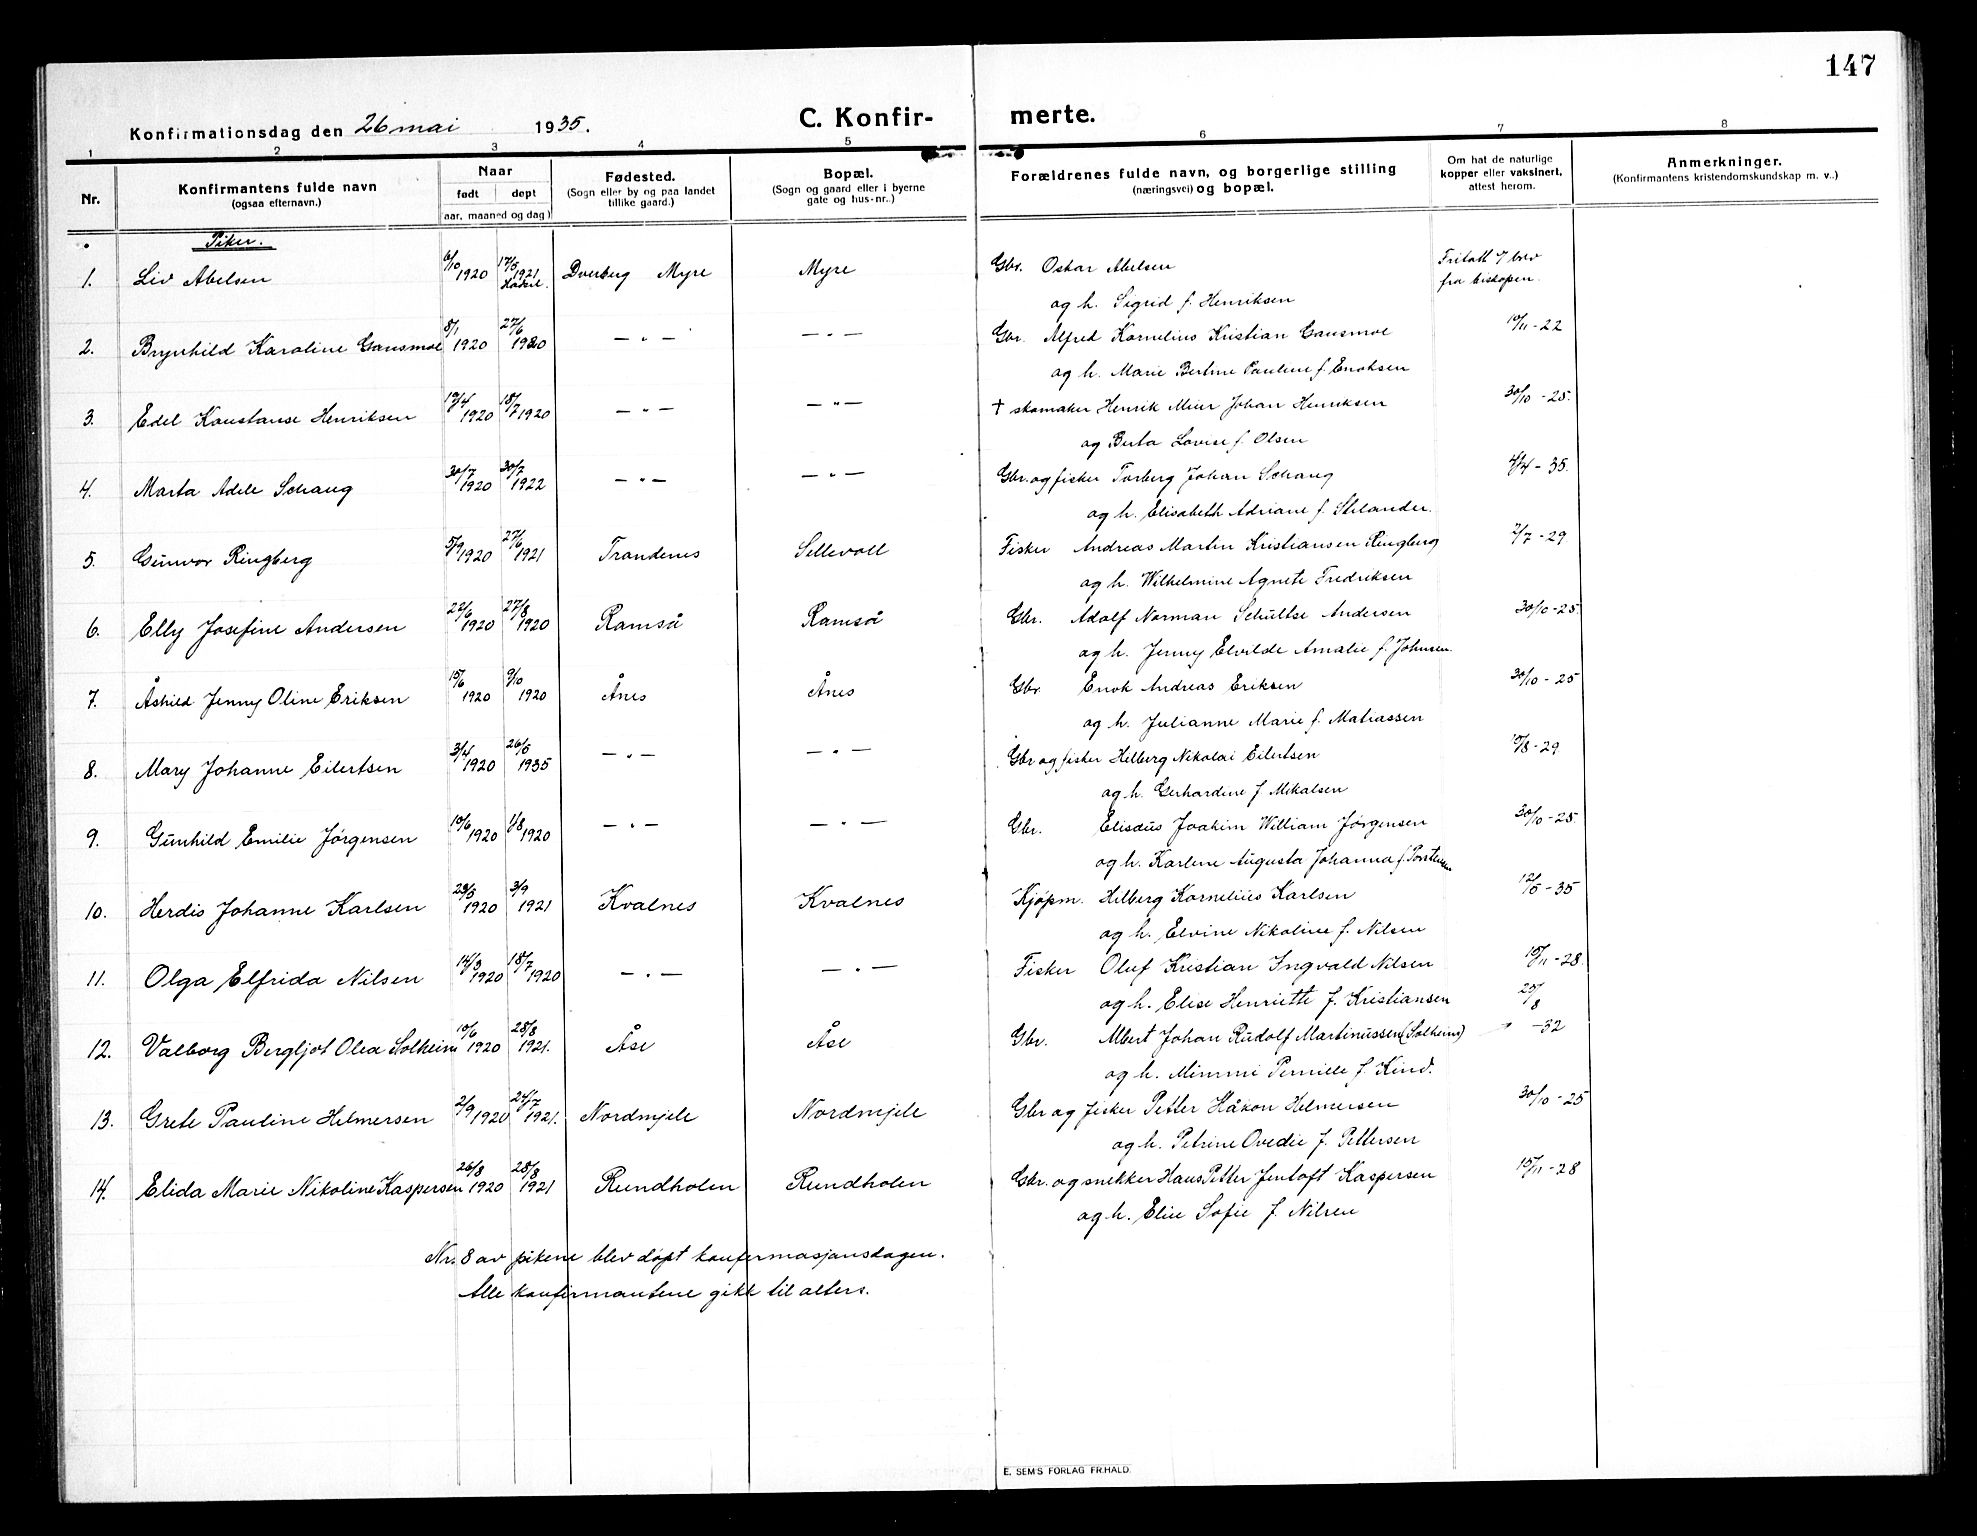 147
Konfirmationsdag den 26 mai 1935.
C. Konfir-
merte.
1 2 3 4 5 6 7 8
Nr.
Konfirmantens fulde navn
(ogsaa efternavn.)
Naar
født døpt
(aar, maaned og dag)
Fødested.
(Sogn eller by og paa landet
tillike gaard.)
Bopæl.
(Sogn og gaard eller i byerne
gate og hus-nr.)
Forældrenes fulde navn, og borgerlige stilling
(næringsvei) og bopæl.
Om hat de naturlige
kopper eller vaksinert,
attest herom.
Anmerkninger.
(Konfirmantens kristendomskundskap m. v..)
Piker.
1. Liv Abelsen 6/10 1920 17/5 1921 Dverberg Myre Myre Gbr. Oskar Abelsen Fritatt v/ brev
og h. Sigrid f. Henriksen fra biskopen.
2. Brynhild Karoline Gausmoe 8/1 1920 27/6 1920 — " — — " — Gbr. Alfred Kornelius Kristian Gausmoe 10/11-22
og h. Marie Bertine Pauline f. Enoksen
3. Edel Konstanse Henriksen 19/4 1920 18/7 1920 — " — — " — † skomaker Henrik Meier Johan Henriksen 30/10-25.
og Berta Lovise f. Olsen
4. Marta Adele Schaug 30/7 1920 30/7 1922 — " — — " — Gbr. og fisker Torberg Johan Schaug 4/4-35.
og h. Elisabeth Adriane f.
5. Gunvor Ringberg 5/9 1920 27/6 1921 Trandenes Sellevoll Fisker Andreas Martin Kristiansen Ringberg 2/7-29
og h. Wilhelmine Agnete Fredriksen
6. Elly Josefine Andersen 22/6 1920 27/8 1920 Ramså Ramså Gbr. Adolf Norman Schultse Andersen 30/10-25
og h. Jenny Elvilde Amalie f. Johnsen.
7. Åshild Jenny Oline Eriksen 15/6 1920 9/10 1920 Ånes Ånes Gbr Enok Andreas Eriksen 30/10-25
og h. Julianne Marie f. Matiassen
8. Mary Johanne Eilertsen 3/4 1920 26/5 1935 — " — — " — Gbr og fisker Hilberg Nikolai Eilertsen 10/8-29
og h. Gerhardine f. Mikalsen
9. Gunhild Emilie Jørgensen 10/6 1920 1/8 1920 — " — — " — Gbr. Elisæus Joakim William Jørgensen 30/10-25
og h. Karlene Augusta Johanna f.
10. Herdis Johanne Karlsen 23/5 1920 3/9 1921 Kvalnes Kvalnes Kjøpm. Hilberg Kornelius Karlsen 12/5-35
og h. Elvine Nikoline f. Nilsen
11. Olga Elfrida Nilsen 14/3 1920 18/7 1920 — " — — " — Fisker Oluf Kristian Ingvald Nilsen 15/11-28.
og h. Elise Henriette f. Kristiansen
12. Valborg Bergljot Olea Solheim 10/6 1920 28/8 1921. Åse Åse Gbr. Albert Johan Rudolf Martinussen (Solheim) 25/8-32
og h. Mimmi Pernille f. Kind.
13. Grete Pauline Helmersen 2/9 1920 24/7 1921. Nordmjele Nordmjele Gbr og fisker Petter Håkon Helmersen 30/10-25
og h. Petrine Ovedie f. Pettersen
14. Elida Marie Nikoline Kaspersen 26/8 1920 28/8 1921 Rundholen Rundholen Gbr. og snikker Hans Petter Jentoft Kaspersen 15/11-28
og h. Elise Sofie f. Nilsen
Nr. 8 av pikene blev døpt konfirmasjonsdagen.
Alle konfirmantene gikk til alters.
E. SEM'S FORLAG FR.HALD.